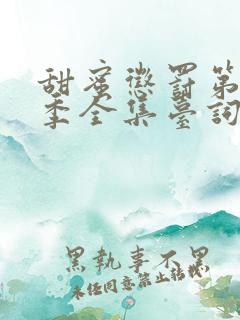 甜蜜懲罰第
季全集臺詞
黑執事不黑
未经同意禁止转载